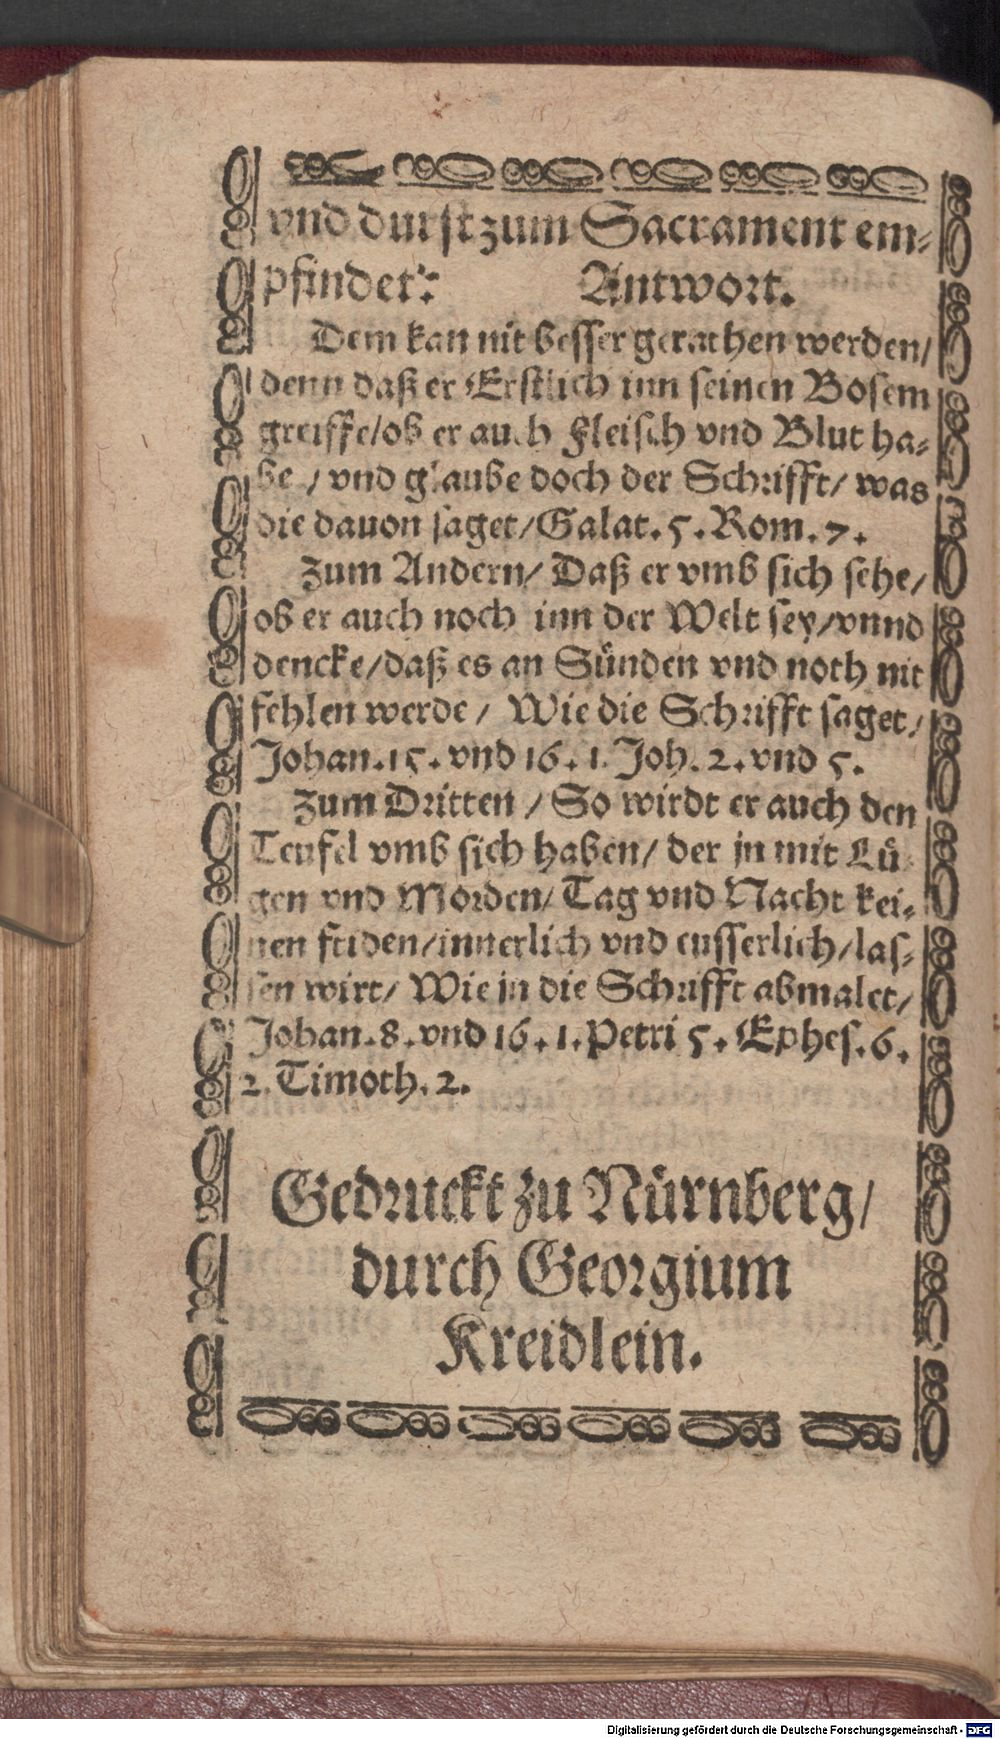 vnd durst zum Sacrament em-
pfindet? Antwort.
Dem kan nit besser gerathen werden/
denn daß er Erstlich inn seinen Bosem
greiffe/ob er auch Fleisch vnd Blut ha-
be / vnd glaube doch der Schrifft/ was
die dauon saget/Galat. 5. Rom. 7.
Zum Andern/ Daß er vmb sich sehe/
ob er auch noch inn der Welt sey/vnnd
dencke/daß es an Sünden vnd noth nit
fehlen werde / Wie die Schrifft saget/
Johan. 15. vnd 16. 1. Joh. 2. vnd 5.
Zum Dritten / So wirdt er auch den
Teufel vmb sich haben/ der jn mit Lü
gen vnd Morden/ Tag vnd Nacht kei-
nen friden/innerlich vnd eusserlich/las-
sen wirt/ Wie jn die Schrifft abmalet/
Johan. 8. vnd 16. 1. Petri 5. Ephes. 6.
2. Timoth. 2.
Gedruckt zu Nürnberg/
durch Georgium
Kreidlein.
Digitalisierung gefördert durch die Deutsche Forschungsgemeinschaft - DFG